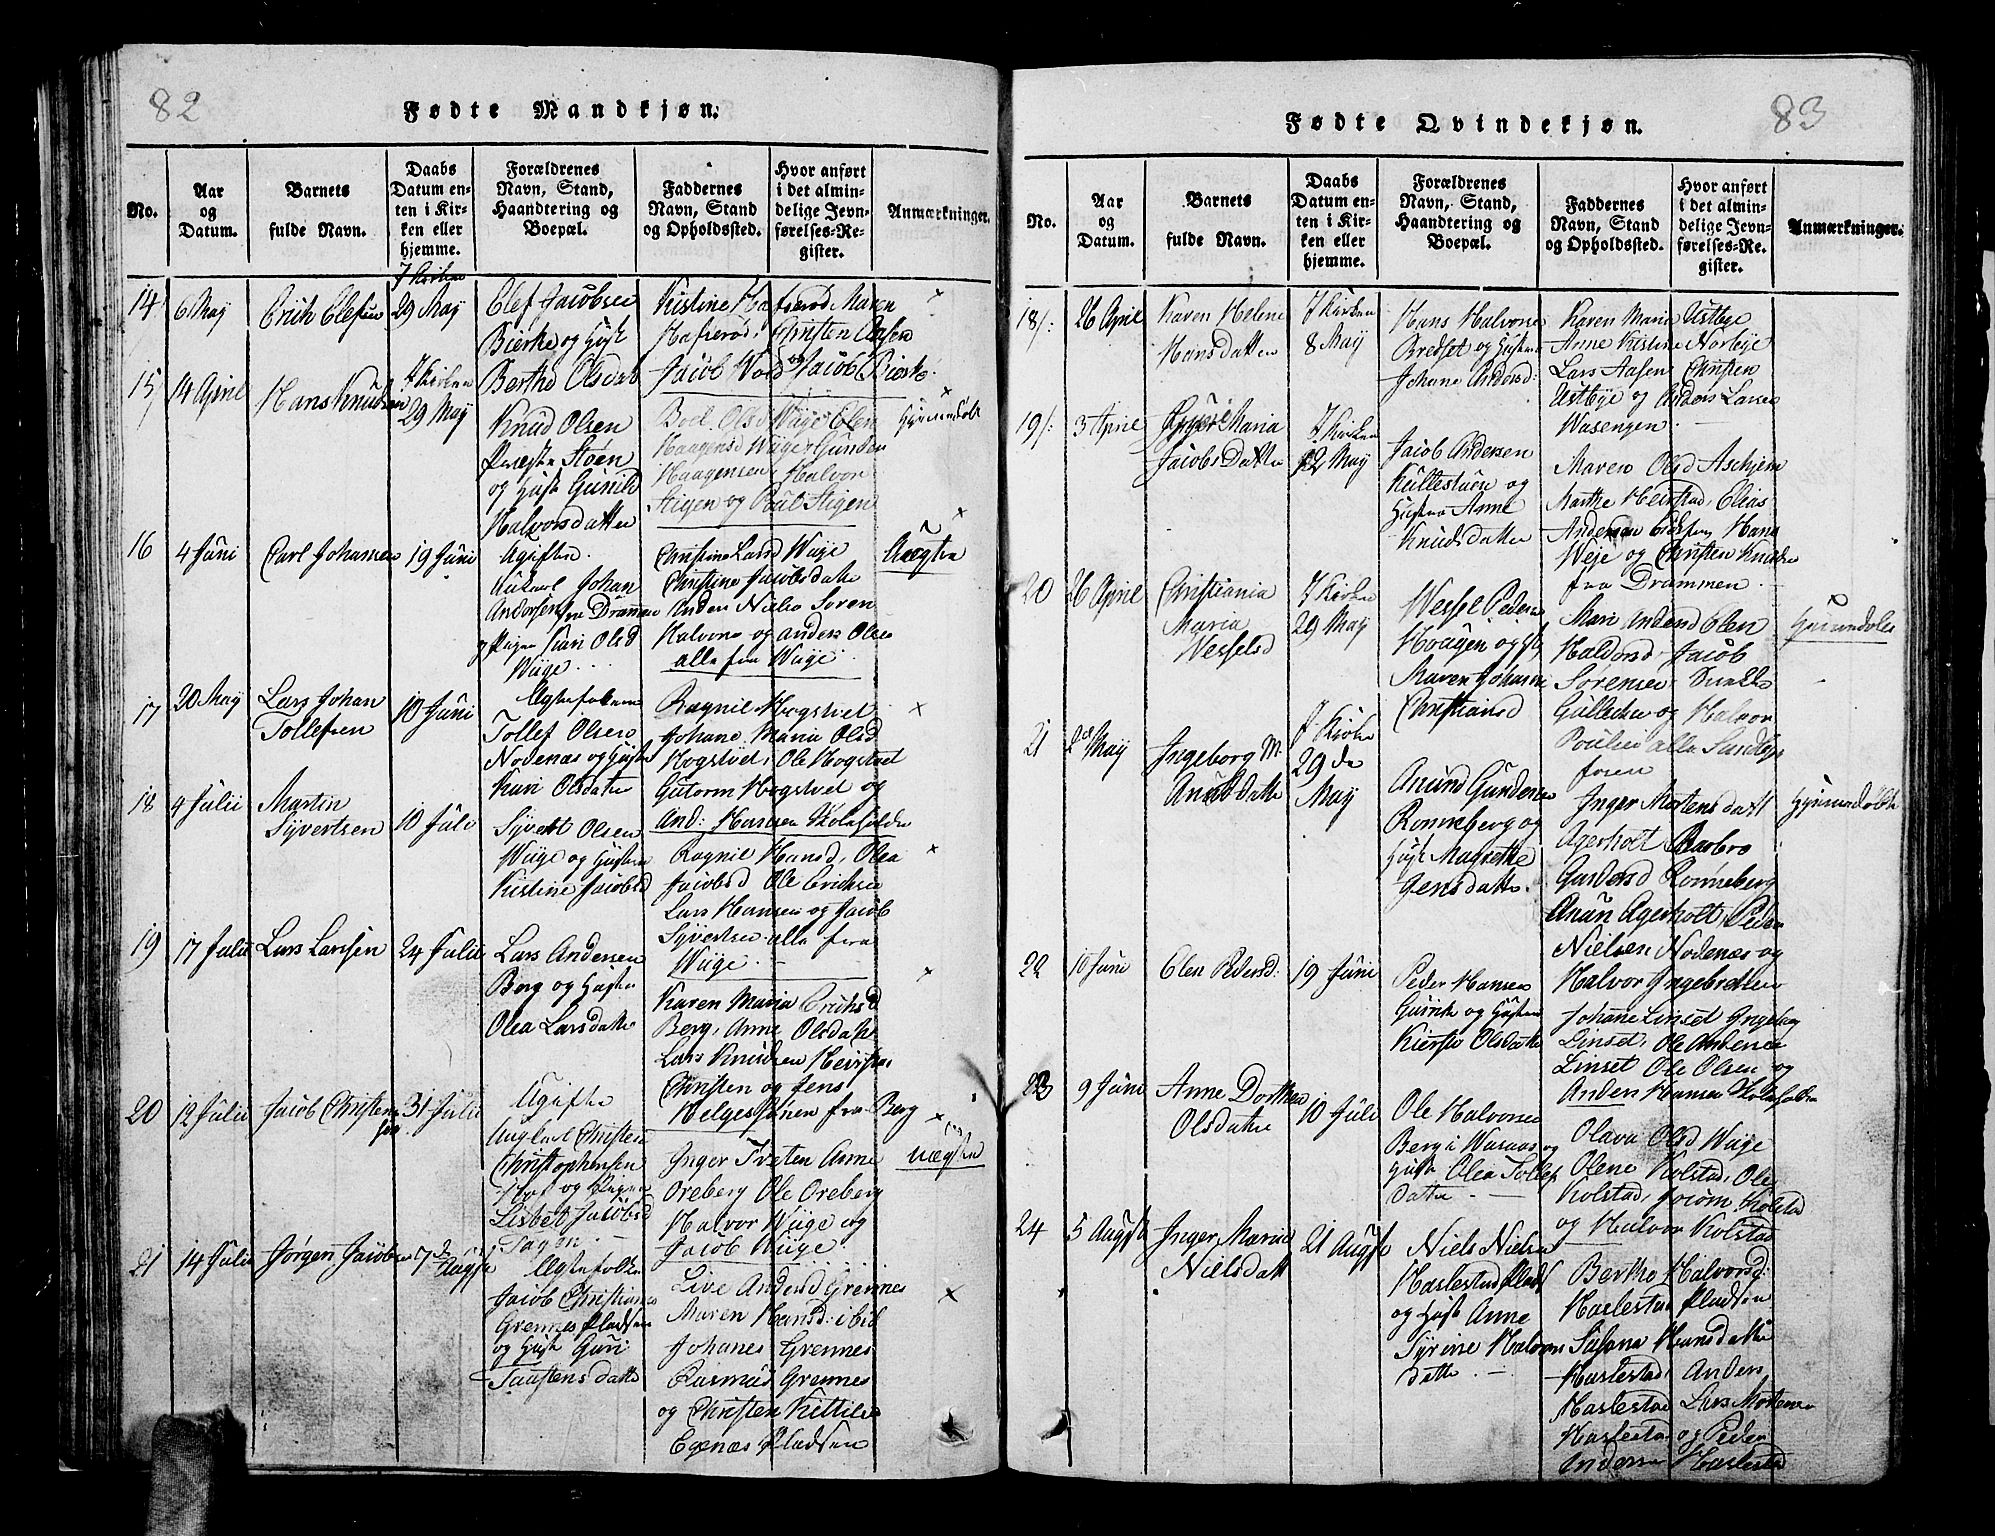 82
Fødte Mandkjøn.
No.
Aar
og
Datum.
Barnets
fulde Navn.
Daabs
Datum en-
ten i Kir-
ken eller
hjemme.
Forældrenes
Navn, Stand,
Haandtering og
Boepæl.
Faddernes
Navn, Stand
og Opholdssted.
Hvor anført
i det almin-
delige Jevn-
førelses-Re-
gister.
Anmærkninger.
14
6 Maij
Erich Olesen
J Kirken
29 Maij
Olef Jacobsen
Bierke og Hust
Berthe Olsdat
Kistine Hafserød, Maren
Hafserød, Christen Aasen
Jacob Wold og Jacob Bierke.
15
14 April
Hans Knudsen
J Kirken
29 Maij
Knud Olsen
Støen
og Hust Gunild
Halvorsdatter
Boel Olsd Wiige Elen
Haagensd Wiige Gunder
Haagensen, Halvor
Stigen og Poul Stigen
16
4 Juni
Carl Johansen
19 Juni
Ugifte
Johan
Andersen fra Drammen
og Pigen Kari Olsd
Wiige
Christine Larsd Wiige
Christine Jacobsdatter
Anders Nielsen Soren
Halvorsen og Anders Olsen
alle fra Wiige
Uægte
17
20 Maij
Lars Johan
Tollefsen
10 Juni
Ægtefolkene
Tollef Olsen
Nodenæs og Hustru
Kari Olsdatter
Ragnil Hogstvet
Johane Maria Olsd
Hogstvet, Ole Hogstad
Gutorm Hogstvet og
And: Hansen Skoleholder
18
4 Julii
Martin
Syvertsen
10 Juli
Syvert Olsen
Wiige og Hustru
Kistine Jacobsd
Ragnil Hansd, Olea
Jacobsd Ole Erichsen
Lars Hansen og Jacob
Syvertsen alle fra
Wiige
19
17 Julii
Lars Larsen
24 Julii
Lars Andersen
Berg og Hustru
Olea Larsdatter
Karen Maria Erichsd
Berg, Anne Olsdatter
Lars Knudsen
Christen og Jens
Helgesstøen fra Berg
20
12 Julii
Jacob Christen
sen
31 Julii
Ugifte
Christen
Christophersen
og Pigen
Lisbet Jacobsd
Inger Tveten Anne
Oreberg Ole Oreberg
Halvor Wiige og
Jacob Wiige
uægte
21
14 Julii
Jørgen Jacobsen
7 de August
Ægtefolkene
Jacob Christians
Grennes Pladsen
og Hust Guri
Taastensdatter
Live Andersd Grennes
Maren Hansd: ibid
Johanes Grennes
Rasmus Grennes
og Christen Kittilsen
Egenæs Pladsen
83
Fødte Qvindekjøn.
No.
Aar
og
Datum.
Barnets
fulde Navn.
Daabs
Datum en-
ten i Kir-
ken eller
hjemme.
Forældrenes
Navn, Stand,
Haandtering og
Boepæl.
Faddernes
Navn, Stand
og Opholdssted.
Hvor anført
i det almin-
delige Jevn-
førelses-Re-
gister.
Anmærkninger.
18/:
26 April
Karen Helene
Hansdatter
J Kirken
8 Maij
Hans Halvorsen
Bredset og Hustru
Johane Andersd:
Karen Maria Ustbye
Anne Kistine Norbye
Lars Aasen, Christen
Ustbye og Anders Larsen
Wasengen
19/:
3 April
Maria
Jacobsdatter
J Kirken
12 Maij
Jacob Andersen
Kullestuen og
Hustru Anne
Knudsdatter
Maren Olsd Aschjem
Marthe Heistad, Elias
Andersen, Hans
Weje og Christen Knudsen
fra Drammen
20
26 April
Christiania
Maria
Wesselsd
J Kirken
29 Maij
Wessel Pedersen
Hougen og Hst
Maren Johanne
Christiansd
Mari Andersd Elen
Haldorsd Jacob
Sorensen
Gulleichen og Halvor
Poulsen alle
21
28 Maij
Ingeborg M.
Anundsdatter
J Kirken
29 de
Maij
Anund Gundersen
Ronneberg og
Hust Magrethe
Gensdatter
Inger Mortensdatt
Agerholt Barbro
Gundersd Ronneberg
Anun Agerholt, Peder
Nielsen Nodenæs og
Halvor Ingebretsen
22
10 Juni
Elen Pedersd:
19 Juni
Peder Hansen
og Hustru
Kiersti Olsdatter
Johanne Linset Ingeborg
Linset, Ole Andersen
Linset Ole Olsen og
Anders Hansen Skoleholder
23
9 Juni
Anne Dorthea
Olsdatter
10 Juli
Ole Halvorsen
Berg i Waraas og
Hust Olea Tollefs
datter
Olava Olsd Wiige
Olene Kolstad, Ole
Kolstad, Kolstad
og Halvor Kolstad
24
5 August
Inger Marie
Nielsdatt
21 August
Niels Nielsen
Haslestad Plads
og Hust Anne
Syrine Halvors
datter
Berthe Halvorsd:
Haslestad Pladsen
Susana Hansdatter
Haslestad, Anders
Haslestad Lars Mortensen
Haslestad og Peder
Andersen Haslestad